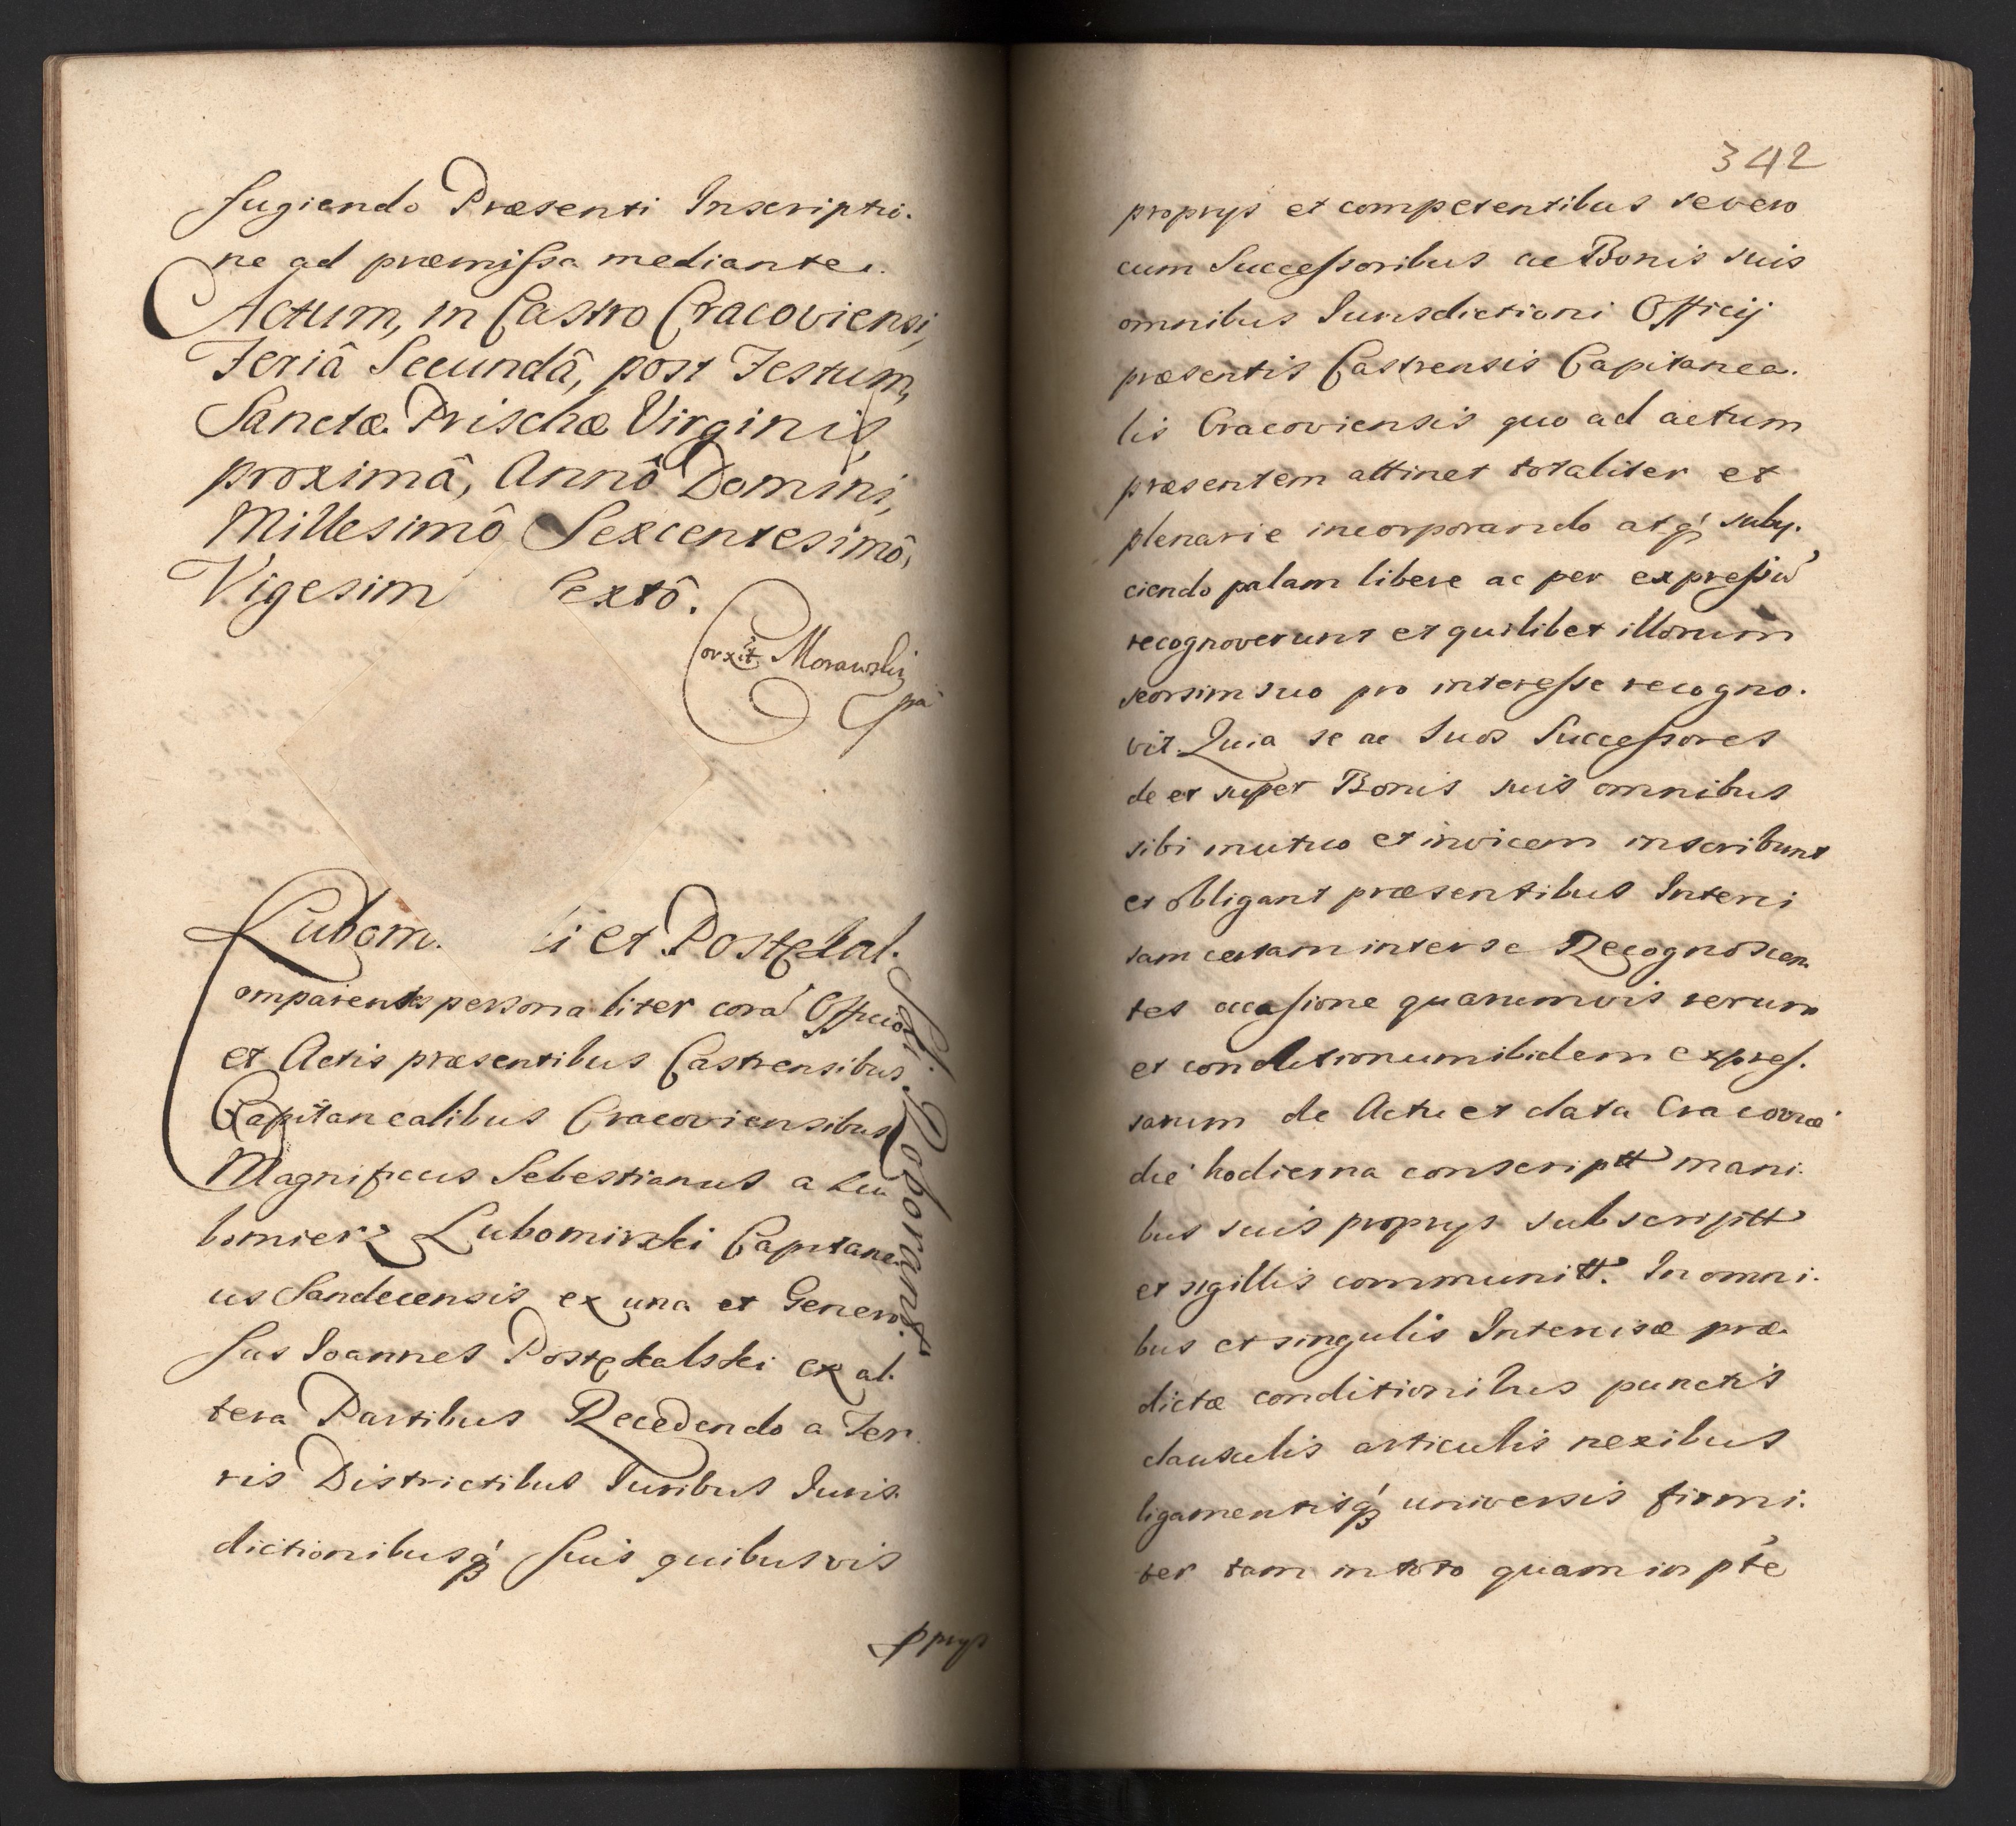 fugiendo Præsenti Inscriptio-
ne ad præmissa mediante.
Actum, in Castro Cracoviensi,
Feriâ Secundâ, post Festum,
Sanctæ Prischæ Virginis,
proximâ, Annô Domini,
Millesimô Sexcentesimô,
Vigesim Sextô.
Corxit Morawski
Lubom. i et Postękal.
Comparentes personaliter corã Officio
et Actis præsentibus Castrensibus
Capitanealibus Cracoviensibus
Magnificus Sebestianus a Lu
bomierz Lubomirski Capitane
us Sandecensis ex una et Genero.
sus Ioannes Postękalski ex al.
tera Partibus Recedendo a Ter
ris Districtibus Iuribus Iuris
dictionibusq́ʒ suis quibusvis
pprys
Sibi Roborant
342
proprys et competentibus se vero
cum Successoribus ac Bonis suis
omnibus Iurisdictioni Officij
præsentis Castrensis Capitanea.
lis Cracoviensis quo ad actum
præsentem attinet totaliter et
plenarie incorporando atq́ʒ suby.
ciendo palam libere ac per expressũ
recognoverunt et quilibet illorum
seorsim suo pro interesse recogno.
vit. Quia se ac suos Successores
de et super Bonis suis omnibus
sibi mutuo et invicem inscribunt
et obligant præsentibus Interci
sam certam inter se Recognoscen
tes occasione quarumvis rerum
et conditionum ibidem expres.
sarum de Actu et data Cracoviæ
die hodierna conscriptt mani.
bus suis proprys subscriptt
et sigillis communitt. In omni.
bus et singulis Intercisæ præ.
dictæ conditionibus punctis
clausulis articulis nexibus
ligamentisq́ʒ universis firmi.
ter tam in toto quam in pte